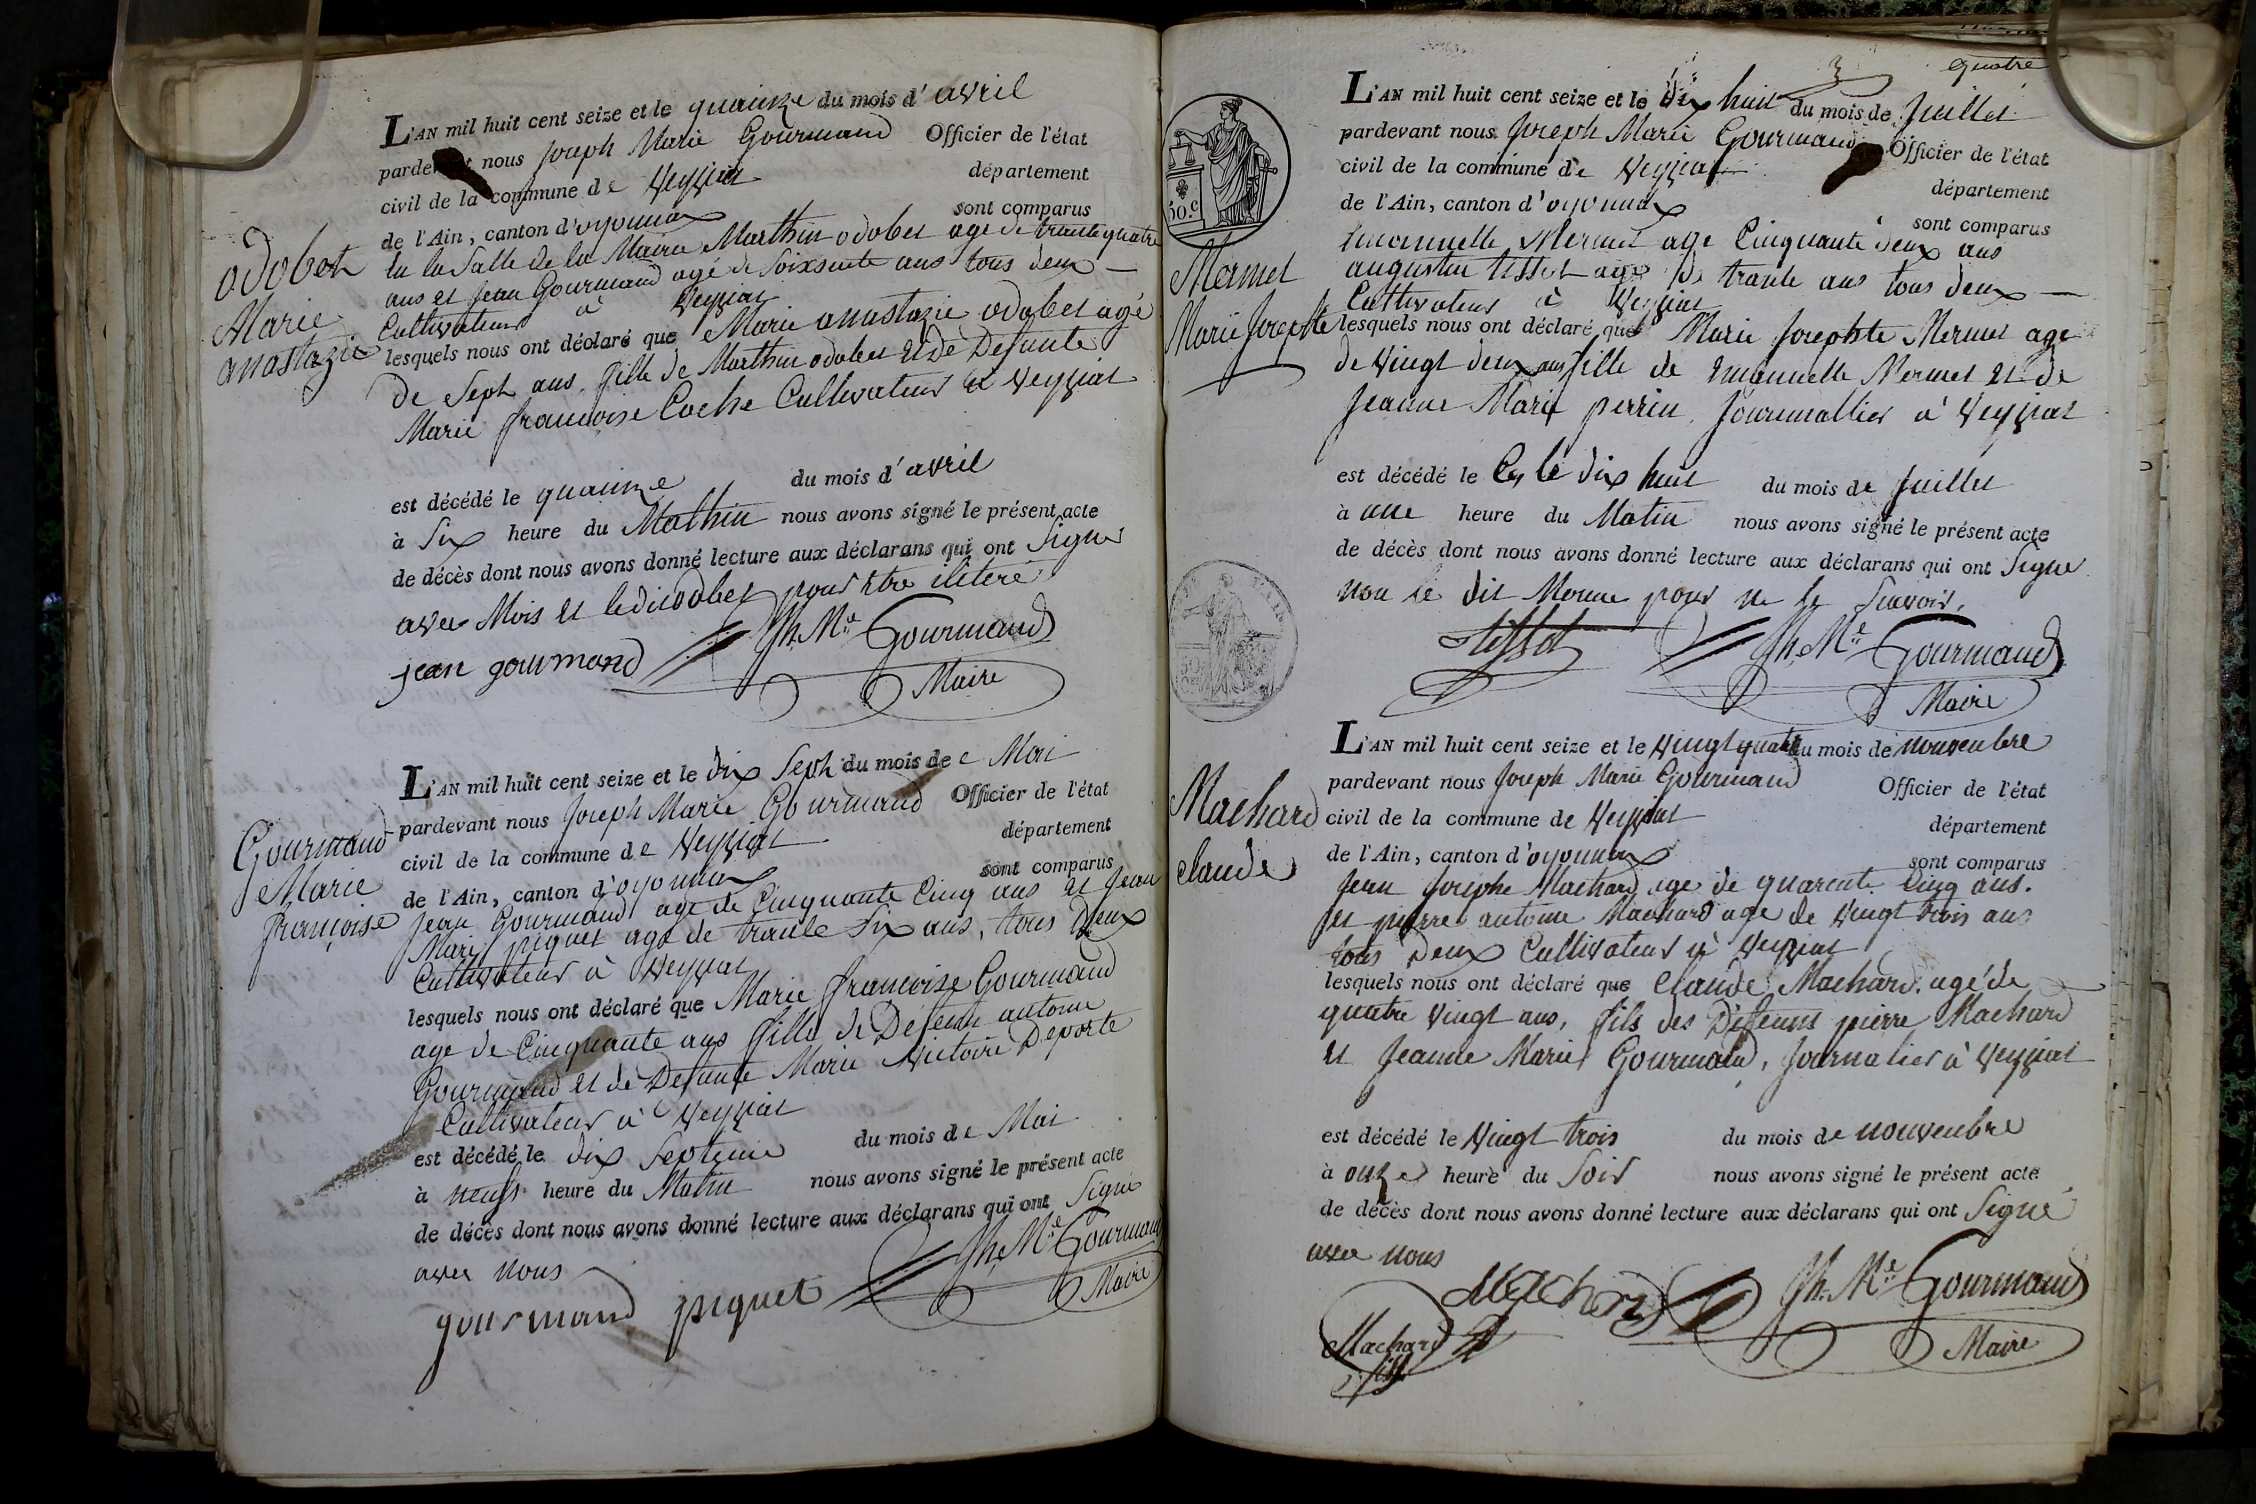 L'AN mil huit cent seize et le quainze du mois d'avril
pardevant nous Joseph Marie Gourmand Officier de l'état
civil de la commune de Veyziat département
de l'Ain, canton d'oyonnax sont comparus
odobet
Marie
anastazie
En la Salle de la Mairie Marthin odobet age de trante quatre
ans et Jean Gourmand agé de Soixsante ans tous deux
Cultivateurs à Veyziat
lesquels nous ont déclaré que Marie anastazie odobet agé
de Sept ans fille de Marthin odobet et de Defunte
Marie francoise Coche Cultivateur à Veyziat
est décédé le quainze du mois d'avril
à Six heure du Mathin nous avons signé le présent acte
de décès dont nous avons donné lecture aux déclarans qui ont Signé
avec Mois et ledit odobet pour être iliteré
jean gourmand Jh. Me Gourmand
Maire
L'AN mil huit cent seize et le dix Sept du mois de Mai
pardevant nous Joseph Marie Gourmand Officier de l'état
civil de la commune de Veyziat département
de l'Ain, canton d'oyonnax sont comparus
Gourmand
Marie
françoise
Jean Gourmand age de Cinquante Cinq ans et Jean
Marie piquet age de trante Six ans, tous deux
Cultivateur à Veyziat
lesquels nous ont déclaré que Marie francoise Gourmand
age de Cinquante ans fille de Defeunt antoine
Gourmand et de Defunte Marie Victoire Deporte
Cultivateur à Veyziat
est décédé le dix Septeme du mois de Mai
à neufs heure du Matin nous avons signé le présent acte
de décès dont nous avons donné lecture aux déclarans qui ont Signé
avec nous
gourmand piquet Jh. Me Gourmand
Maire
quatre
L'AN mil huit cent seize et le dix huit du mois de Juillet
pardevant nous Joseph Marie Gourmand Officier de l'état
civil de la commune de Veyziat département
de l'Ain, canton d'oyonnax sont comparus
50.c
Mermet
Marie Josephte
Emanuelle Mermet age Cinquante deux ans
augustin tissot age de trante ans tous deux
Cultivateur à Veyziat
lesquels nous ont déclaré que Marie Josephte Mermet age
de Vingt deux ans fille de Emanuelle Mermet et de
Jeanne Marie perrin, Journallier à Veyziat
est décédé le Cy le dix huit du mois de Juillet
à une heure du Matin nous avons signé le présent acte
de décès dont nous avons donné lecture aux déclarans qui ont Signé
non le dit pour ne le Scavoir,
tissot Jh. Me Gourmand
Maire
L'AN mil huit cent seize et le Vingt quatre du mois de nouvenbre
pardevant nous Joseph Marie Gourmand Officier de l'état
civil de la commune de Veyziat département
de l'Ain, canton d'oyonnax sont comparus
Machard
claude
Jean Josephe Machard age de quarente Cinq ans.
et pierre antoine Machard age de Vingt trois ans
tous deux Cultivateur à Veyziat
lesquels nous ont déclaré que Claude Machard, agé de
quatre Vingt ans, fils des Defeunts pierre Machard
et Jeanne Marie Gourmand, Journalier à Veyziat
est décédé le Vingt trois du mois de nouvenbre
à onze heure du Soir nous avons signé le présent acte
de décès dont nous avons donné lecture aux déclarans qui ont Signé
avec nous
Machard Jh. Me Gourmand
Machard Maire
fils